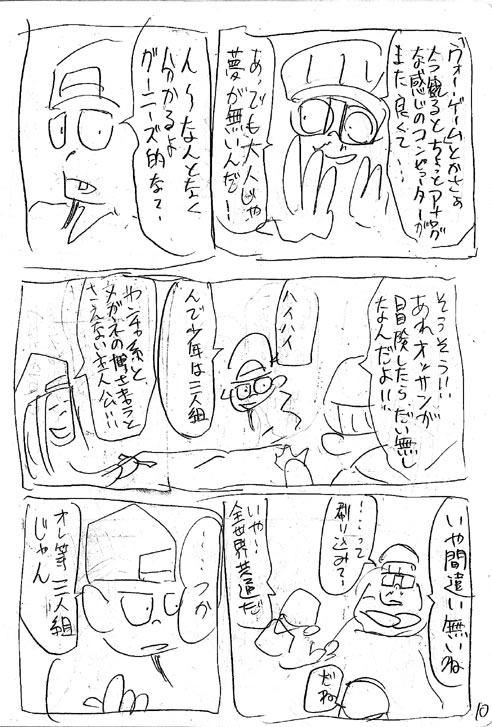 「ウォーゲーム」とかさぁ
今観るとちょっとアナログ
な感じのコンピューターが
また良くて…
あ、でも大人じゃ
夢が無いんだ!
ん〜なんとなく
分かるよ
グーニーズ的な?
そうそう!!
あれオッサンが
冒険したらだい無し
なんだよ!!
ハイハイ
んで少年は三人組
ヤンチャ系と
メガネの博士ちゃうと
さえない主人公!!
いや間違い無いね
…って
刷り込み?
いや〜
全世界共通だ
だね
…つか
オレ等三人組
じゃん
10